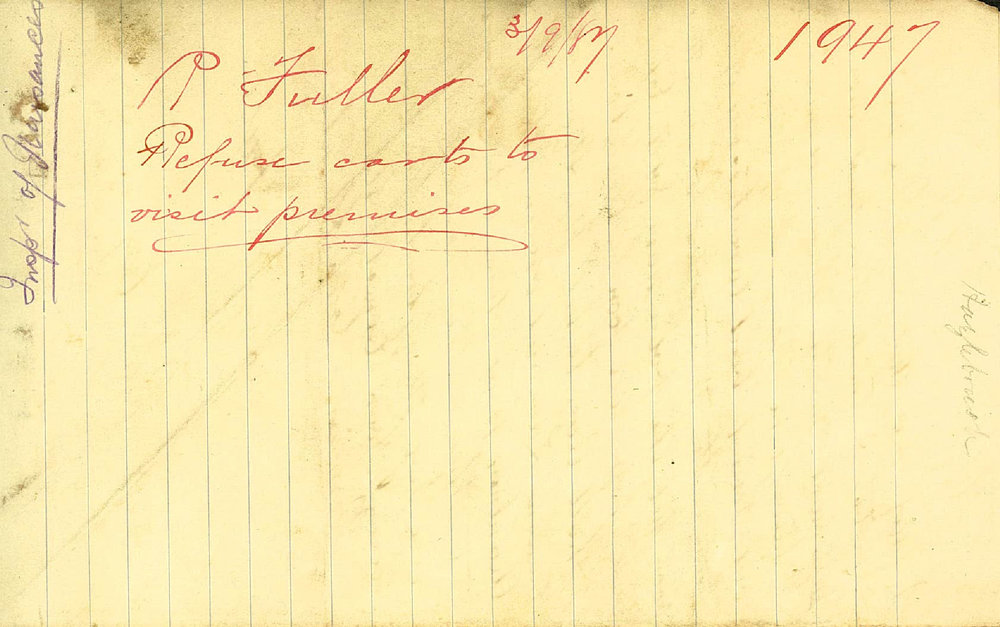 3/9/87
1947
R Fuller
Refuse carts to
visit premises
Inspr of Nuisances